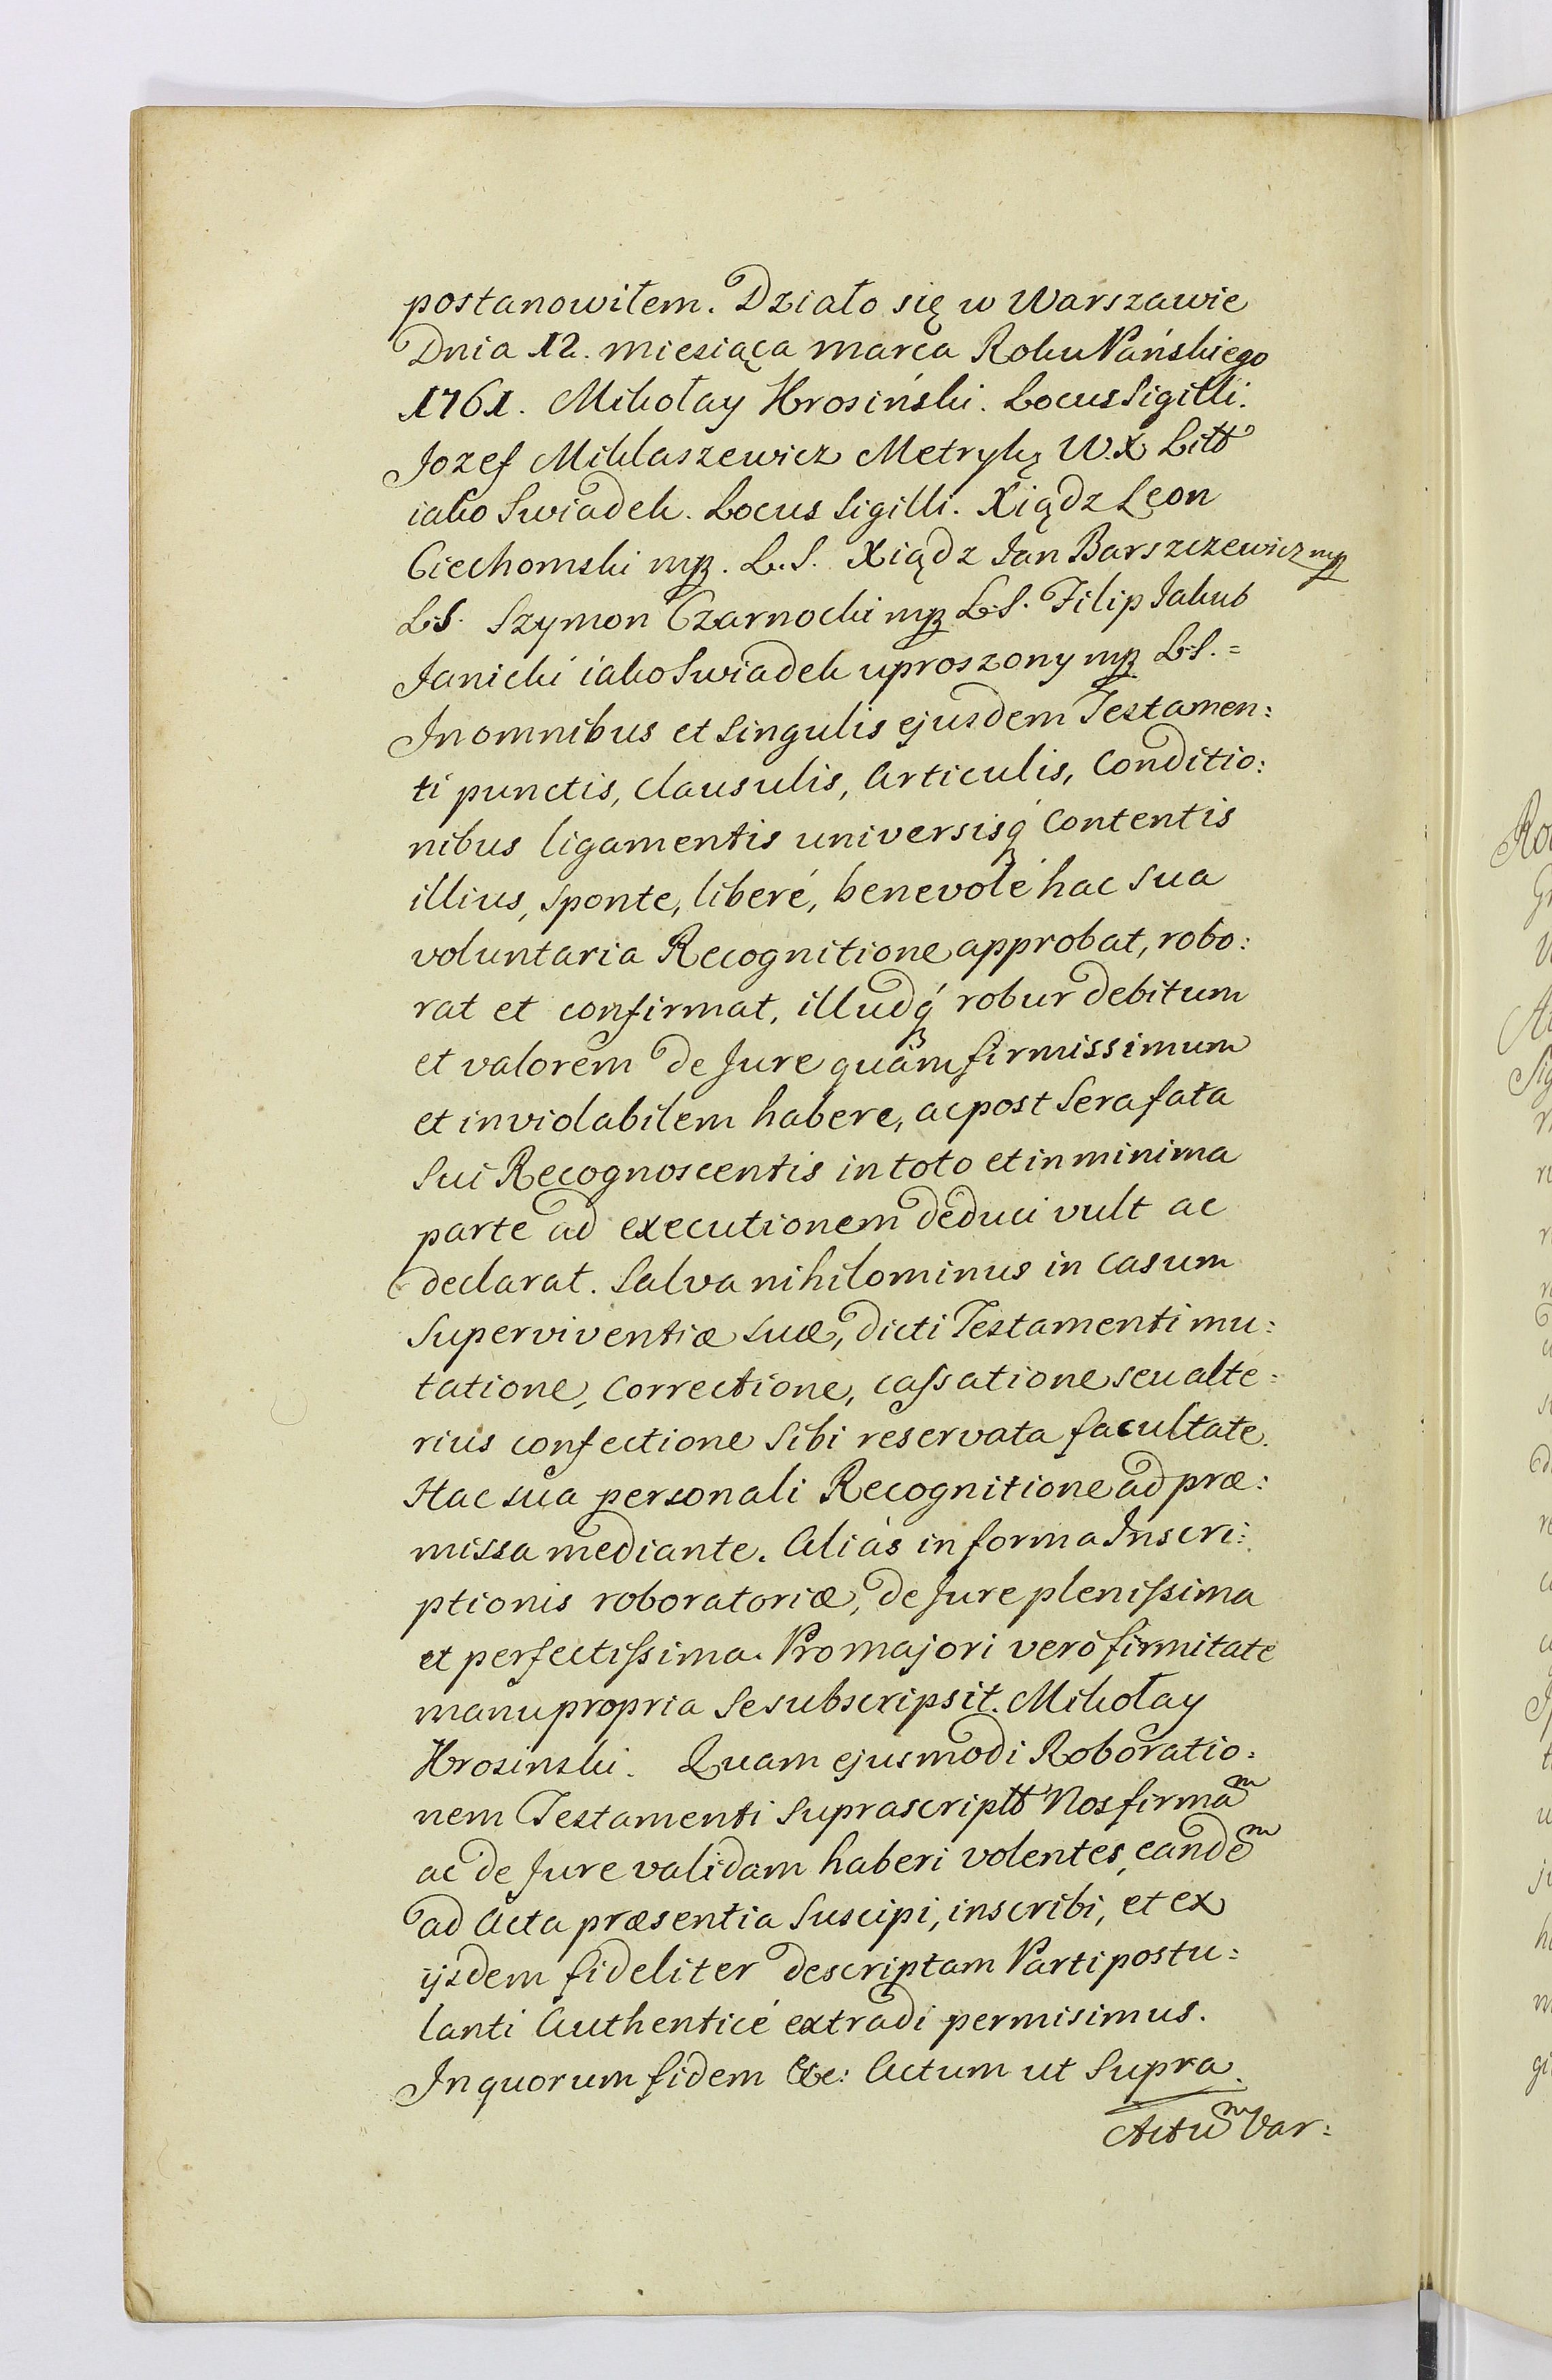 postanowiłem. Działo się w Warszawie
Dnia 12. miesiąca marca Roku Pańskiego
1761. Mikołay Krosiński. Locus Sigilli.
Jozef Miklaszewicz Metryk W. X Litt
iako Swiadek. Locus Sigilli. Xiądz Leon
Ciechomski mp. L.S. Xiądz Jan Barszczewicz mp
L:S. Szymon Czarnocki mp L:S. Filip Jakub
Janicki iako Swiadek uproszony mp L:S. =
In omnibus et Singulis ejusdem Testamen:
ti punctis, Clausulis, Articulis, Conditio:
nibus ligamentis universisq́ Contentis
illius, sponte, liberé, benevolé hac Sua
voluntaria Recognitione approbat, robo:
rat et confirmat, illudq́ robur debitum
et valorem de Jure quám firmissimum
et inviolabilem habere, ac post Sera fata
Sui Recognoscentis in toto et in minima
parte ad executionem deduci vult ac
declarat. Salva nihilominus in Casum
Superviventiæ suæ, dicti Testamenti mu:
tatione, Correctione, caſsatione seu alte:
rius confectione Sibi reservata facultate.
Hac sua personali Recognitione ad præ:
missa mediante. Aliás in forma Inscri:
ptionis roboratoriæ, de Jure pleniſsima
et perfectiſsima. Pro majori veró firmitate
manu propria Se subscripsit. Mikołay
Krosinski. Quam ejusmodi Roboratio:
nem Testamenti Suprascriptt Nos firmaᵐ
ac de Jure validam haberi volentes, eandeᵐ
ad Acta præsentia Suscipi, inscribi, et ex
ijsdem fideliter descriptam Parti postu:
lanti Authenticé extradi permisimus.
In quorum fidem &c: Actum ut Supra.
Actuᵐ Var: